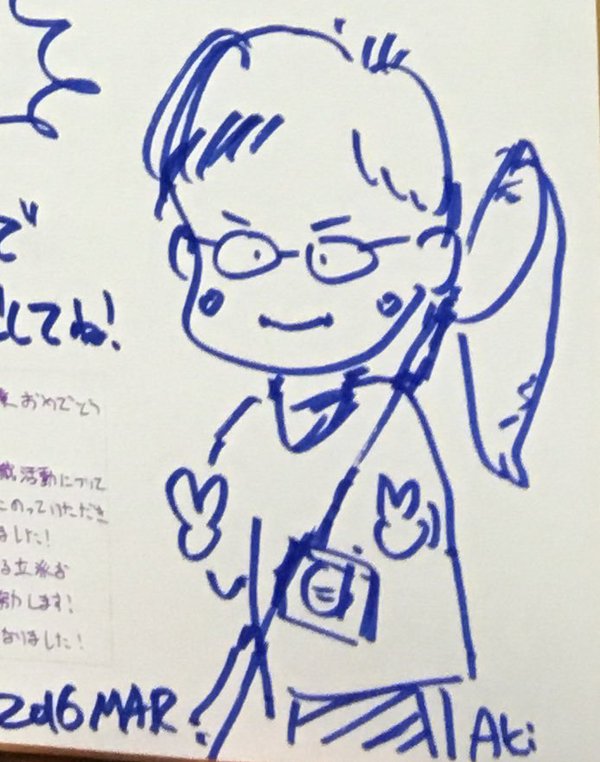 で
してね!
おめでとう
活動について
のっていただき
ました!
る立派な
します!
なりました!
2016 MAR.
Aki